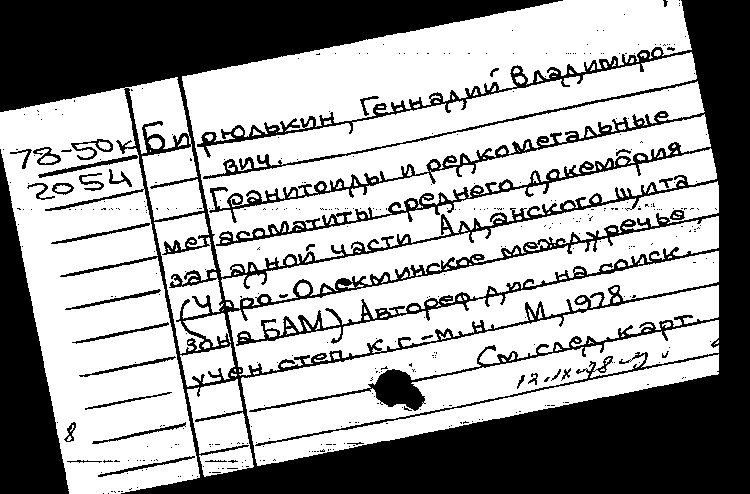 78-50к
2054
Бирюлькин, Геннадий Владимиро-
вич.
Гранитоиды и редкометальные
метасоматиты среднего докембрия
западной части Алданского щита
(Чаро-Олекминское междуречье,
зона БАМ). Автореф. дис. на соиск.
учен. степ. к.г.-м.н. М., 1978.
См. след. карт.
12.IX-78
8